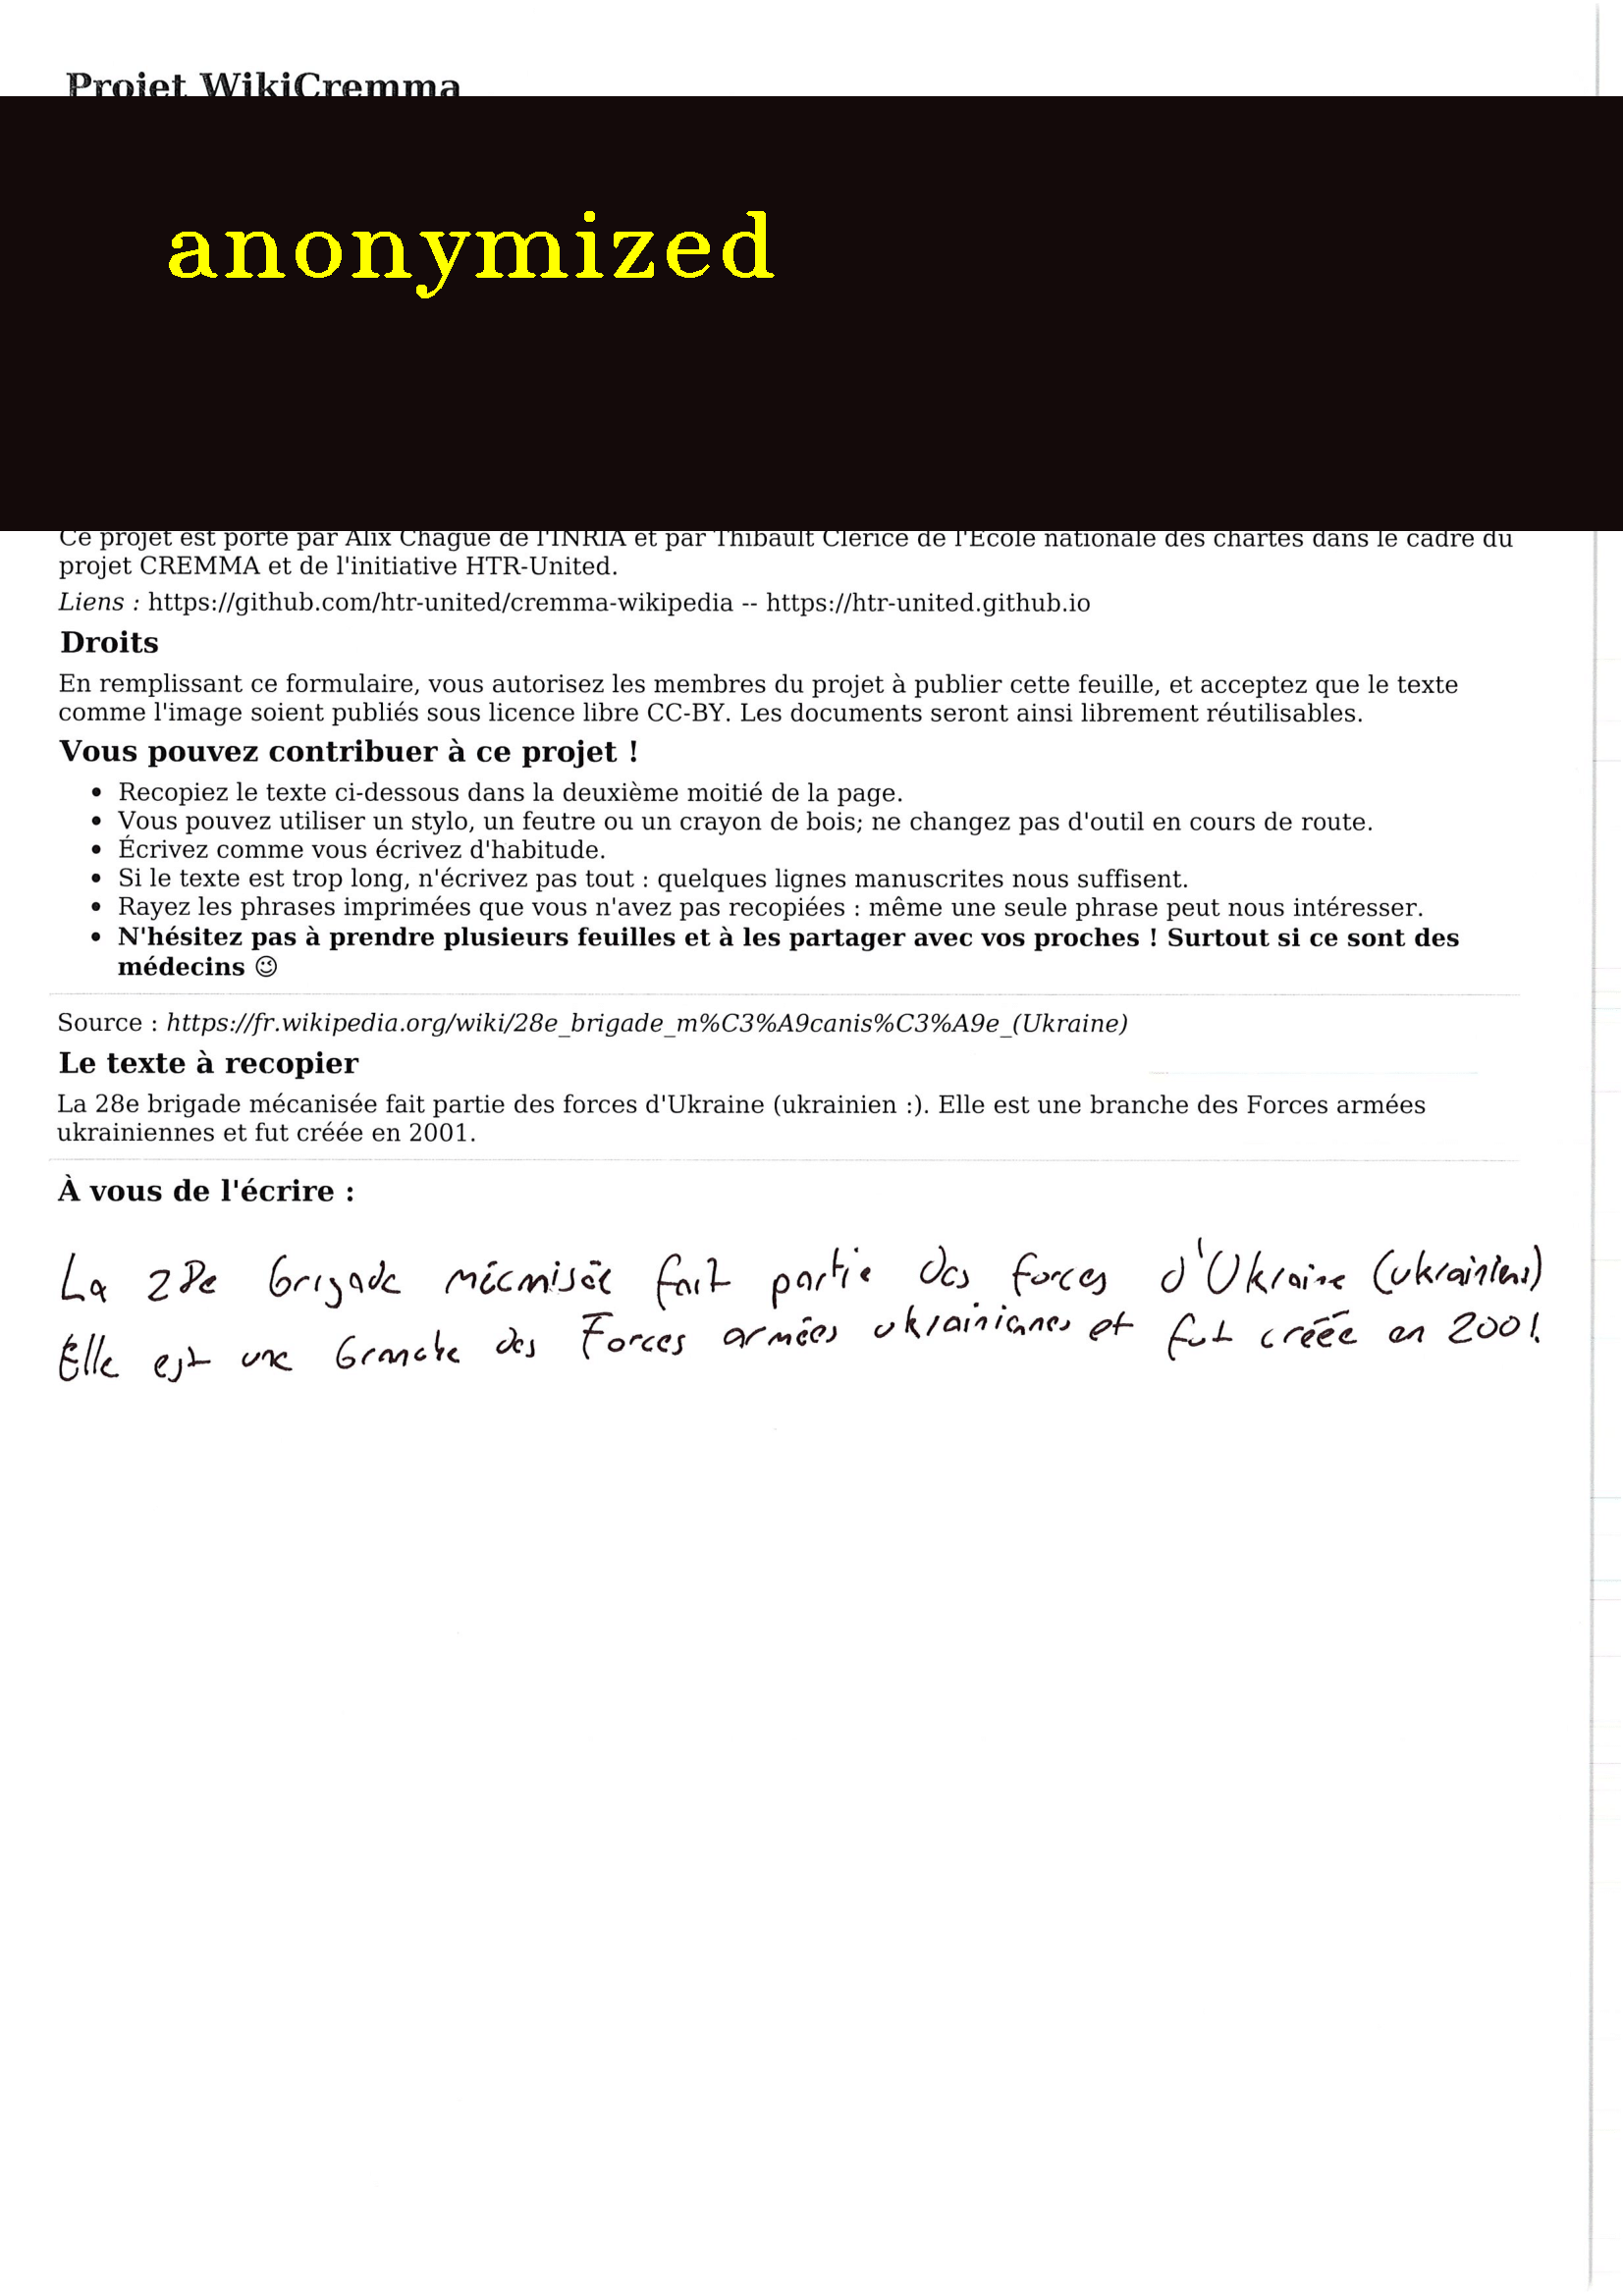 Projet WikiCremma
anonymized
Ce projet est porté par Alix Chagué de l'INRIA et par Thibault Clérice de l'École nationale des chartes dans le cadre du
projet CREMMA et de l'initiative HTR-United.
Liens : https://github.com/htr-united/cremma-wikipedia -- https://htr-united.github.io
Droits
En remplissant ce formulaire, vous autorisez les membres du projet à publier cette feuille, et acceptez que le texte
comme l'image soient publiés sous licence libre CC-BY. Les documents seront ainsi librement réutilisables.
Vous pouvez contribuer à ce projet !
• Recopiez le texte ci-dessous dans la deuxième moitié de la page.
• Vous pouvez utiliser un stylo, un feutre ou un crayon de bois; ne changez pas d'outil en cours de route.
• Écrivez comme vous écrivez d'habitude.
• Si le texte est trop long, n'écrivez pas tout : quelques lignes manuscrites nous suffisent.
• Rayez les phrases imprimées que vous n'avez pas recopiées : même une seule phrase peut nous intéresser.
• N'hésitez pas à prendre plusieurs feuilles et à les partager avec vos proches ! Surtout si ce sont des
médecins 😉
Source : https://fr.wikipedia.org/wiki/28e_brigade_m%C3%A9canis%C3%A9e_(Ukraine)
Le texte à recopier
La 28e brigade mécanisée fait partie des forces d'Ukraine (ukrainien :). Elle est une branche des Forces armées
ukrainiennes et fut créée en 2001.
À vous de l'écrire :
La 28e brigade mécanisée fait partie des forces d'Ukraine (ukrainiens)
Elle est une branche des Forces armées ukrainiennes et fut créée en 2001.